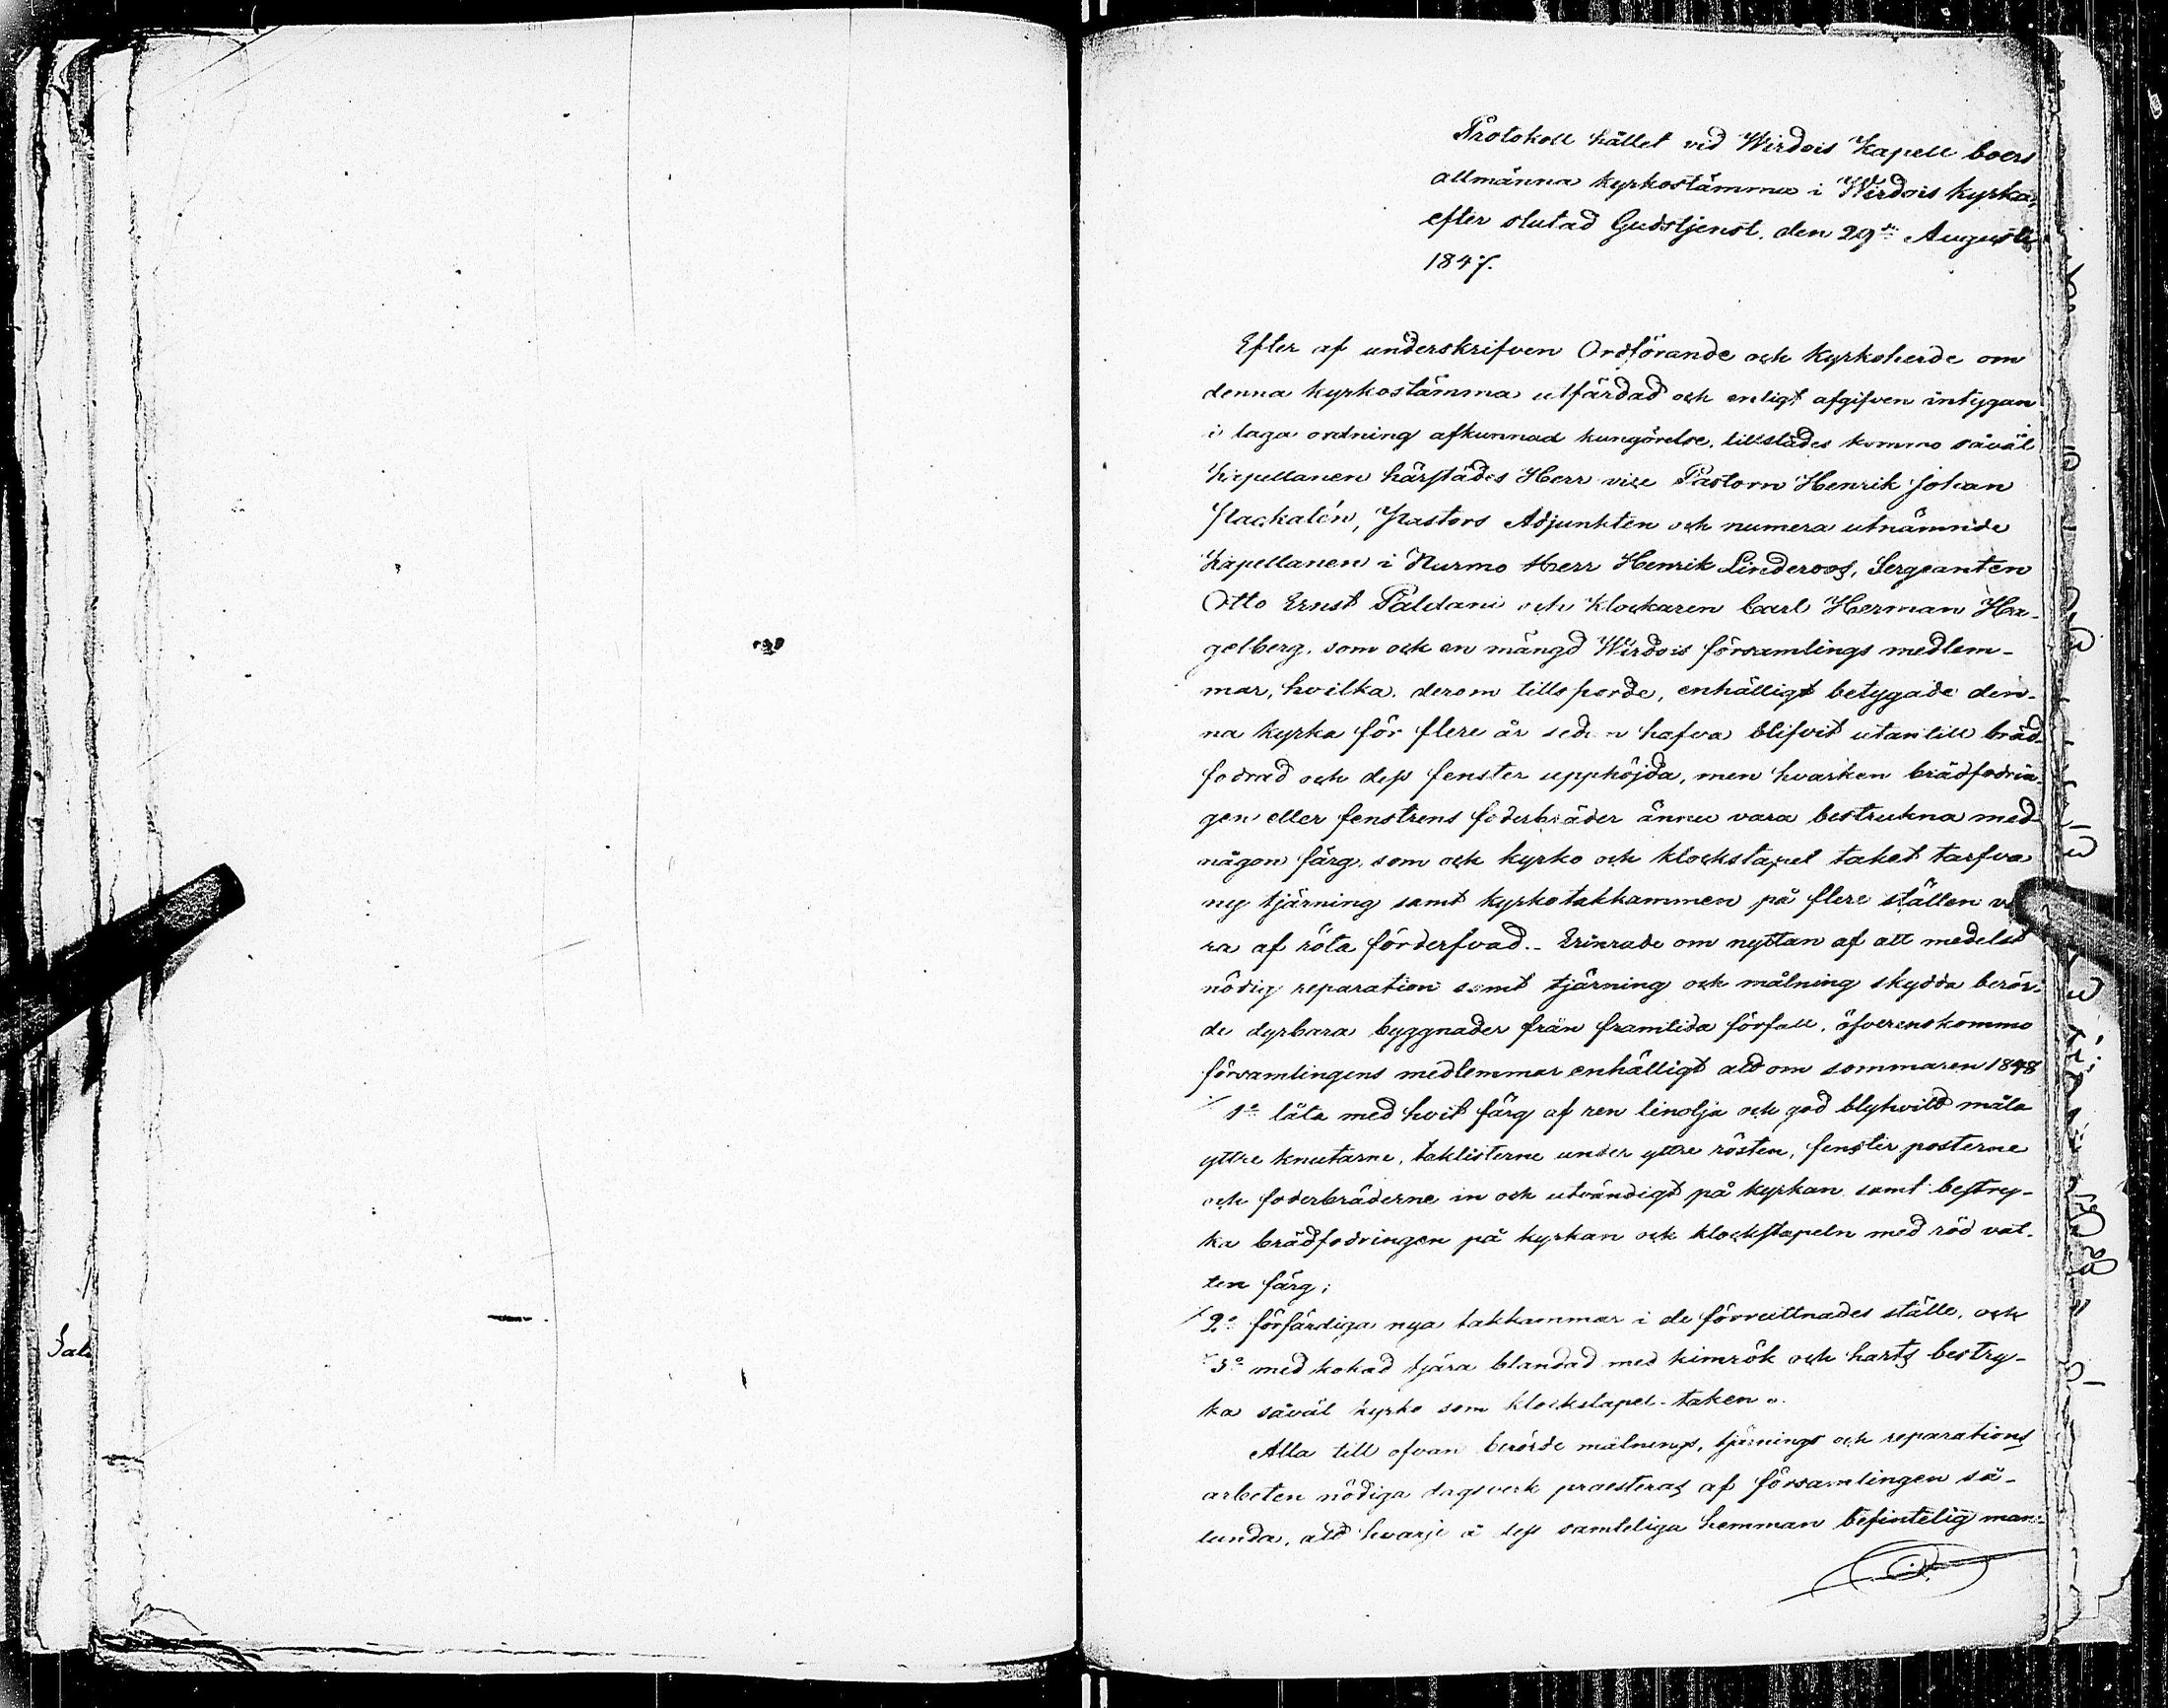 Protokoll hållet vid Wirdois Kapell boers
allmänna kyrkostämma i Wirdois kyrka,
efter slutad Gudstjenst, den 29de Augusti
1847.
Efter af underskrifven Ordförande och Kyrkoherde om
denna kyrkostämma utfärdad och enligt afgifven intygan
i laga ordning afkunnad kungörelse, tillstädes kommo såväl
Kapellanen härstädes Herr vice Pastorn Henrik Johan
Pastors Adjunkten och numera utnämnde
Kapellanen i Nurmo Herr Henrik Linderoos, Sergeanten
Otto Ernst Paldani och Klockaren Carl Herman Ha-
gelberg, som ock en mängd Wirdois församlings medlem-
mar, hvilka, derom tillsporde, enhälligt betygade den-
na kyrka för flere år sedan hafva blifvit utantill bräd-
fodrad och dess fenster upphöjda, men hvarken brädfodrin-
gen eller fenstrens foderbräder ännu vara bestrukna med
någon färg, som ock kyrko och klockstapel taket tarfva
ny tjärning samt kyrkotakkammen på flere ställen va-
ra af röta förderfvad.- Erinrade om nyttan af att medelst
nödig reparation samt tjärning och målning skydda berör-
de dyrbara byggnader från framtida förfall, öfverenskommo
församlingens medlemmar enhälligt att om sommaren 1848
1o låta med hvit färg af ren linolja och god blyhvitt måla
yttre knutarne, taklisterne under yttre rösten, fenster posterne
och foderbräderne in och utvändigt på kyrkan samt bestry-
ka brädfodringen på kyrkan och klockstapeln med röd vat-
ten färg;
2o förfärdiga nya takkammar i de förruttnades ställe, och
3o med kokad tjära blandad med kimrök och harts bestry-
ka såväl kyrko som klockstapel-taken.
Alla till ofvan berörde målnings, tjärnings och reparations
arbeten nödiga dagsverk praesteras af församlingen så-
lunda, att hvarje å dess samteliga hemman befintelig man-